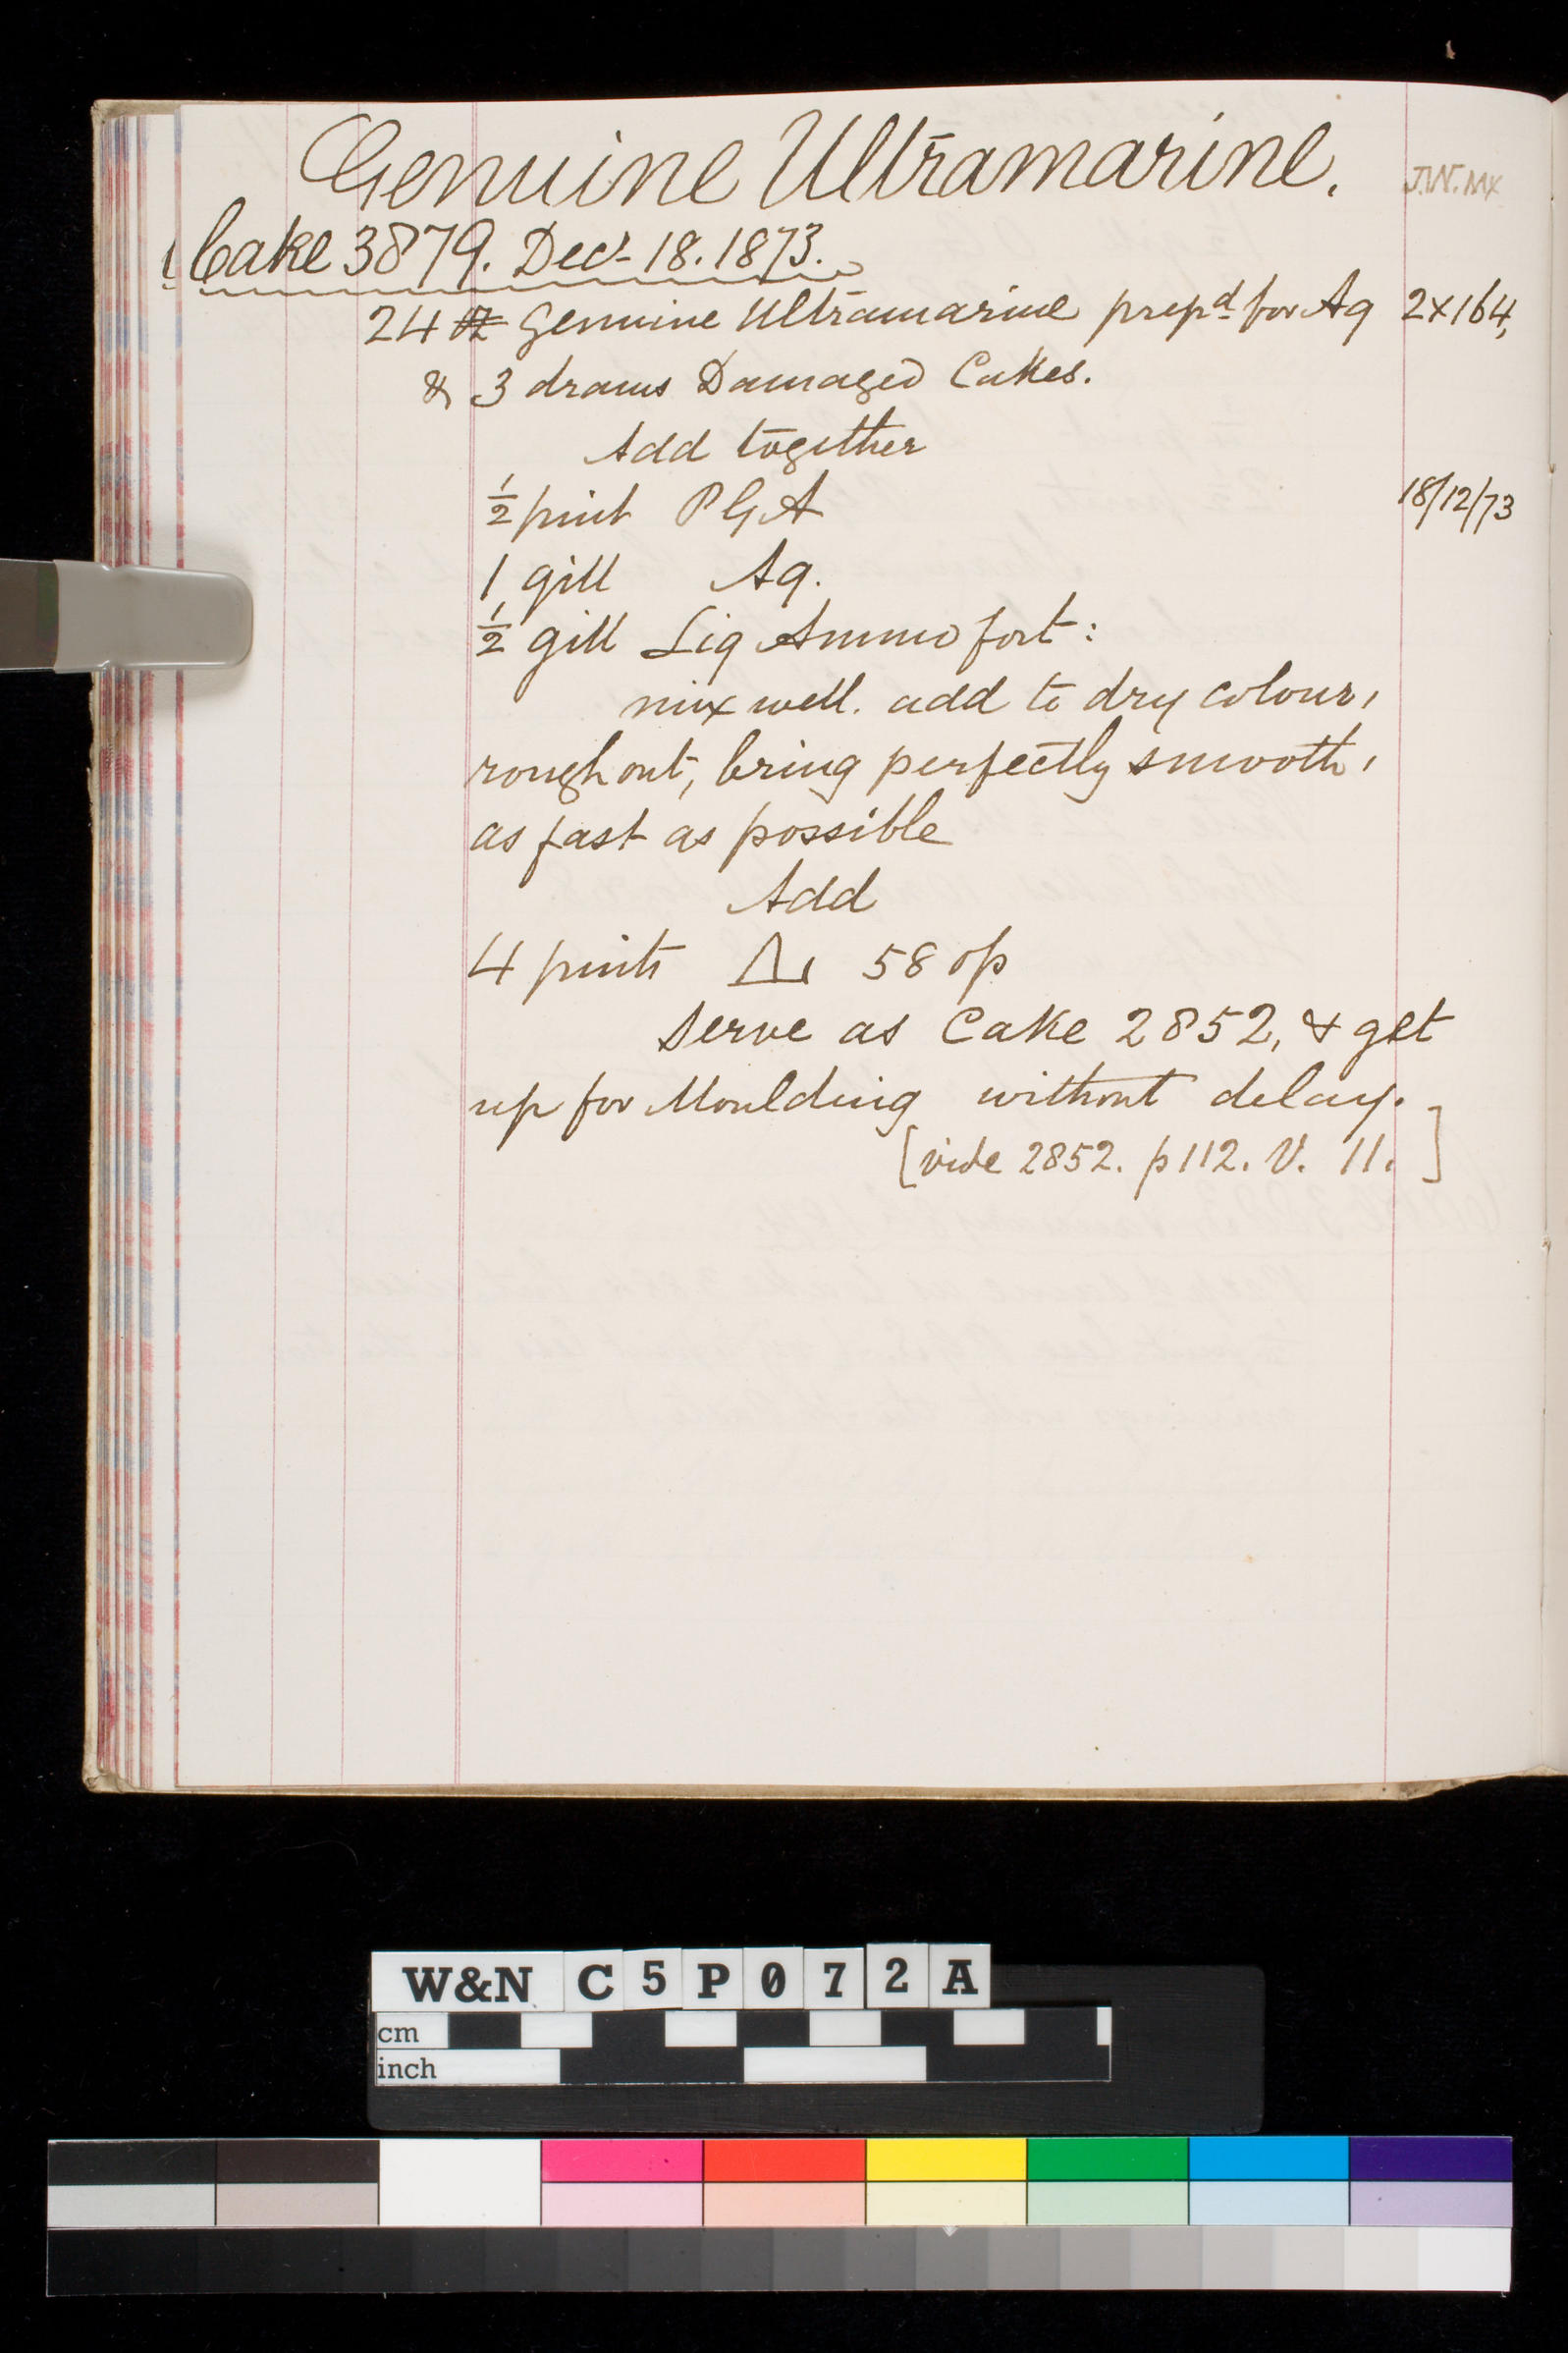 Genuine Ultramarine. J.W. MX
Cake 3879. Decr 18. 1873.
24 oz Genuine Ultramarine prepd for Aq 2x164,
& 3 drams Damaged Cakes.
Add together
½ pint P G A 18/12/73
1 gill Aq.
½ gill Liq Ammo fort:
mix well. add to dry colour,
rough out, bring perfectly smooth,
as fast as possible
Add
4 pints 58 op
Serve as Cake 2852, & get
up for Moulding without delay.
[vide 2852. p112. V. 11.]
W&N C5P072A
cm
inch